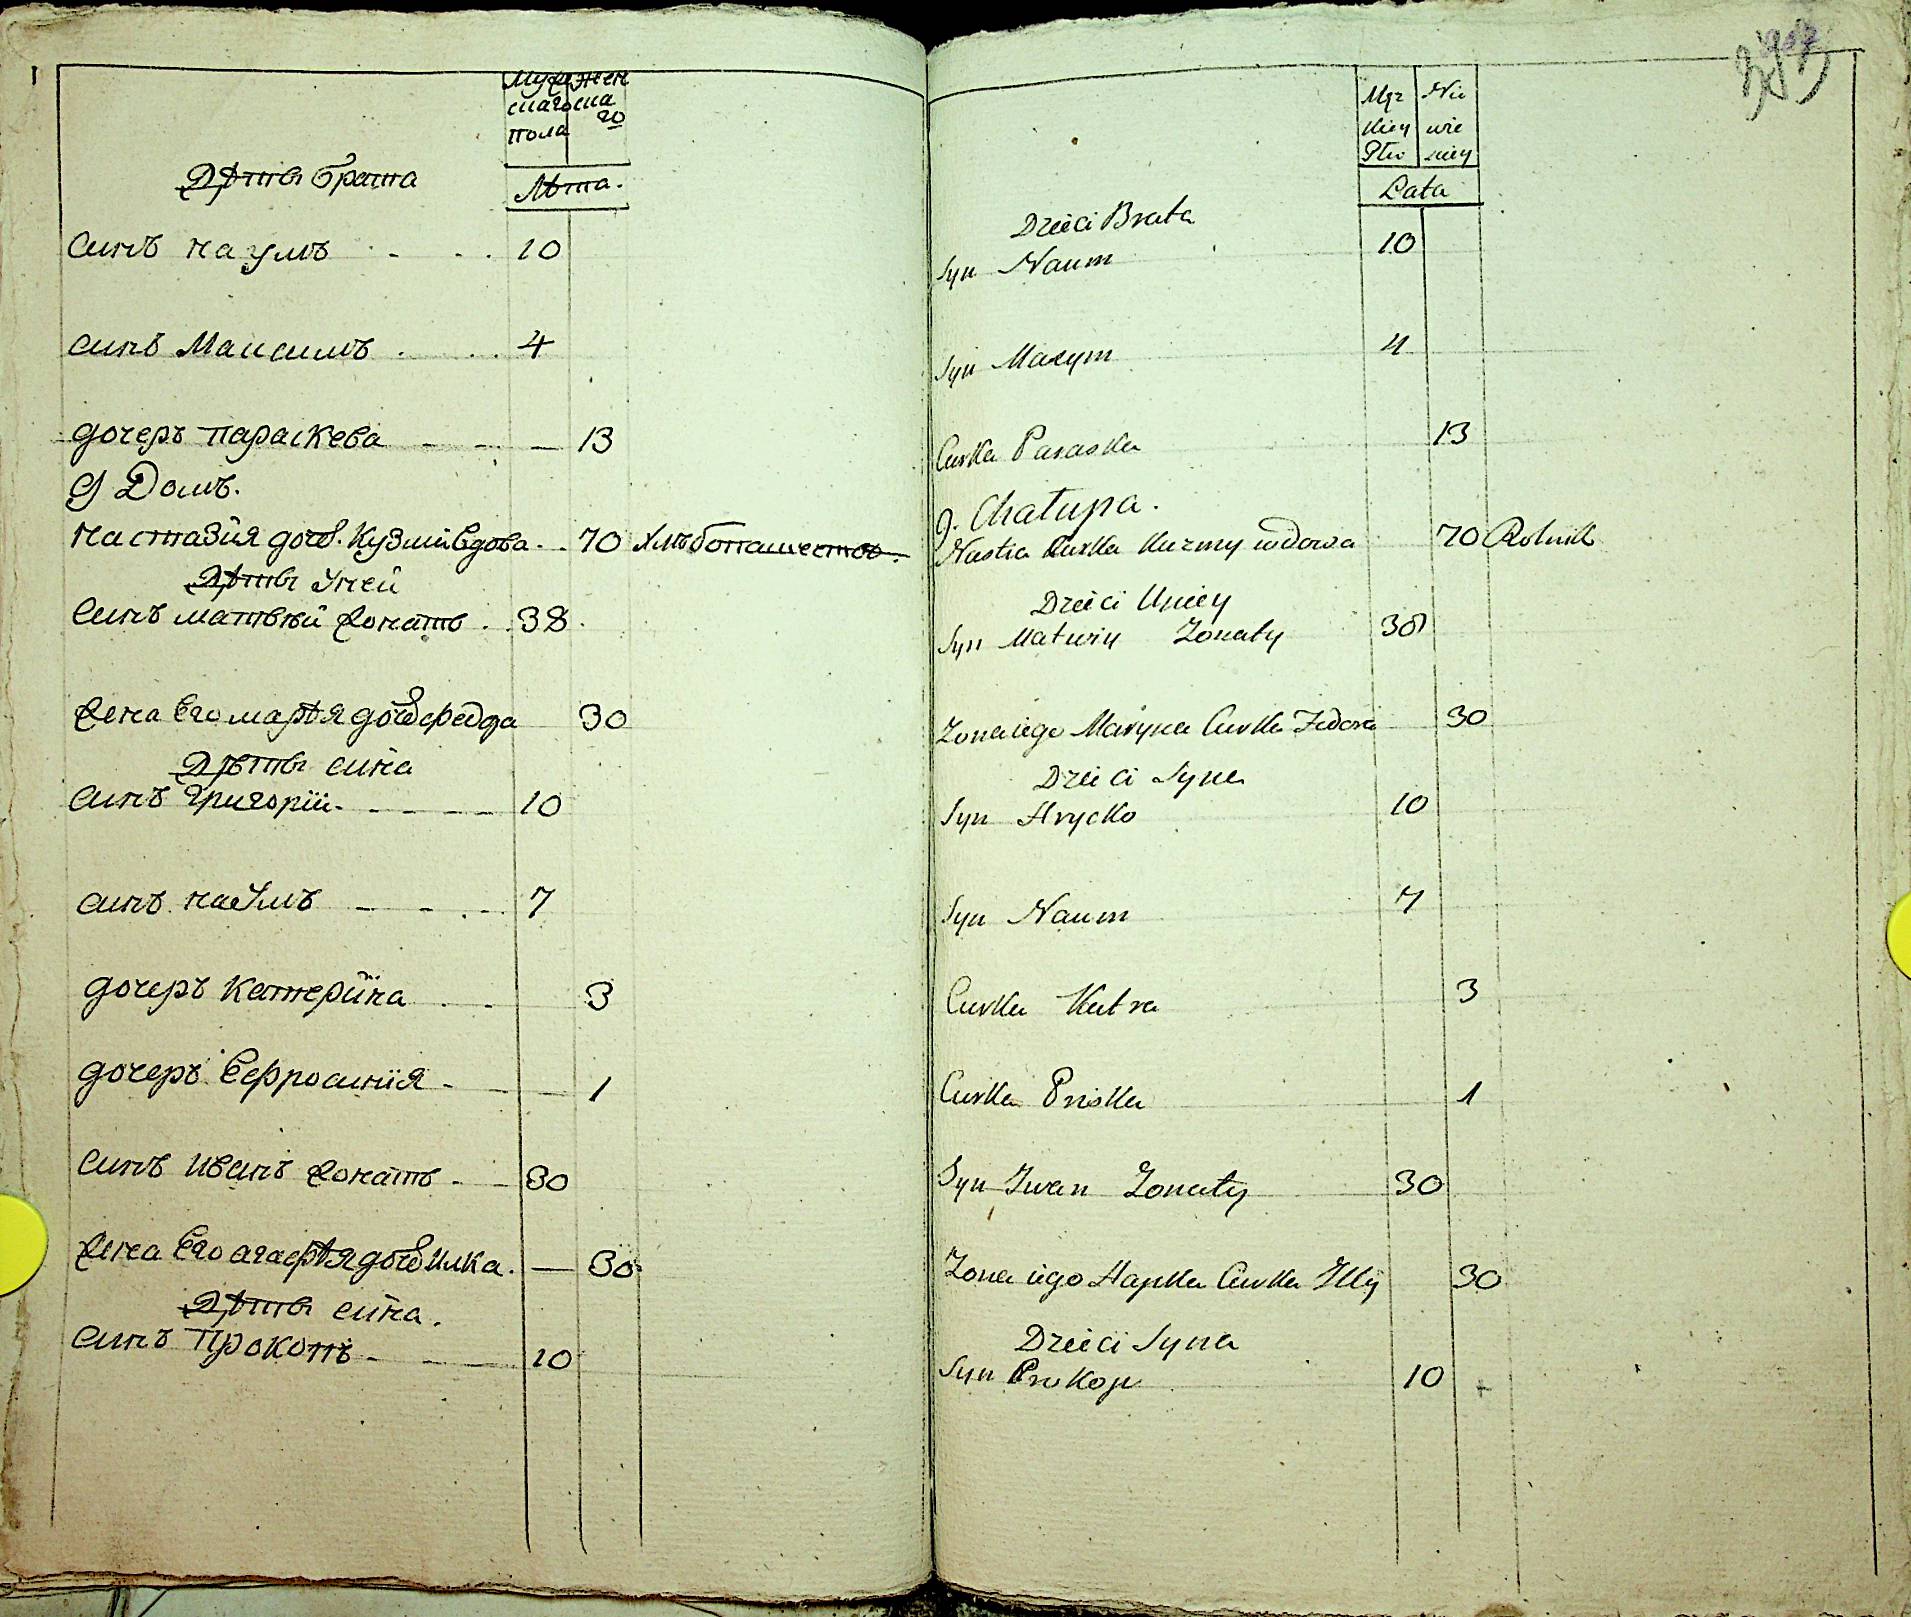 Муже Жен
скаго ска
пола го
Лѣта.
Дѣтти брата
Синъ наумъ 10
синъ Максимъ 4
дочеръ параскева 13
9 Домъ.
настазїя доч. Кузми вдова 70 хлѣбопашество.
Дѣтти Уней
Синъ матвѣй жонатъ 38
жена Его марѣя доч федора 30
Дѣтти сина
Синъ григорїи 10
синъ наУмъ 7
дочеръ катерїна 3
дочеръ Ефросинїя 1
синъ иванъ жонатъ 30
жена Его агафѣя доч илка. 30
Дѣтти сина.
Синъ Прокопъ 10
Męz Nie
kiey wie
Płw sciey
Lata
Dzieci Brata
Syn Naum 10
Syn Maxym 4
Curka Paraska 13
9. Chałupa.
Nastia Curka Kuzmy wdowa 70 Rolnik
Dzieci Uniey
Syn Matwiy Zonaty 38
Zona iego Maryna Curka Fedora 30
Dzieci Syna
Syn Hrycko 10
Syn Naum 7
Curka Katra 3
Curka Priska 1
Syn Iwan Zonaty 30
Zona iego Hapka Curka Illij 30
Dzieci Syna
Syn Prokop 10